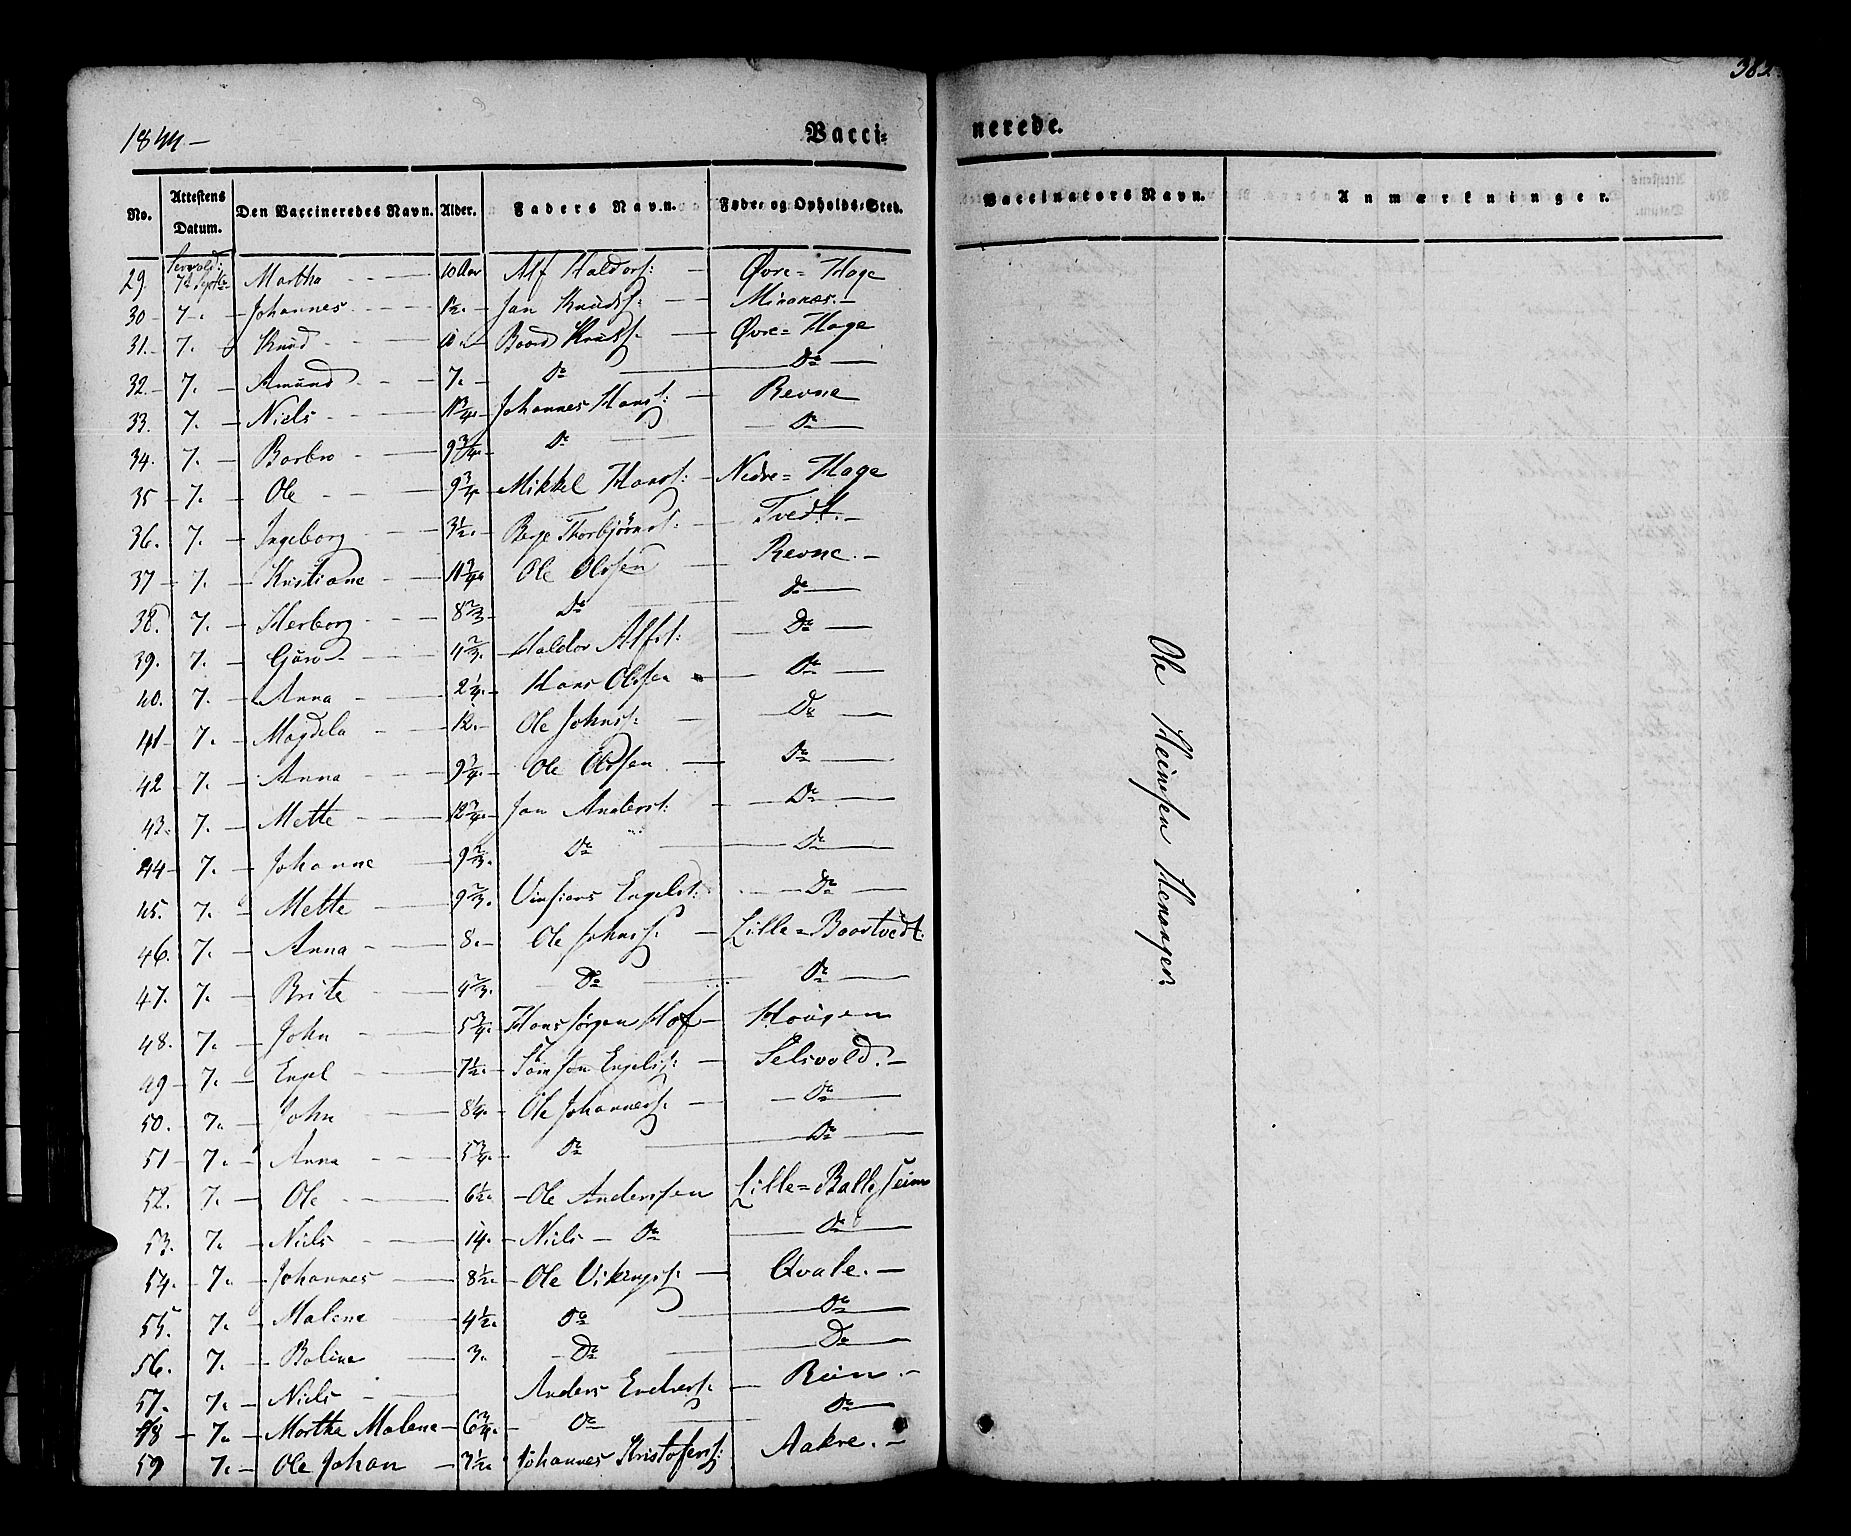 382
1844 –
Vacci=
nerede.
No. Attestens Datum. Den Vaccineredes Navn. Alder. Faders Navn. Føde- og Opholds-Sted. Vaccinators Navn. Anmærkninger.
29 7de Septbr Martha 10 Aar Alf Haldors: Øvre = Hage
30 7. Johannes 1½. Jan Knuds: Miranes.
31. 7. Knud Baard Knuds: Øvre = Hage
32 7. Amund 7. Do Do
33. 7. Niels Johannes Hans: Revne
34. 7. Barbro 9¾. Do Do
35 7. Ole 9¾ Mikkel Hans: Nedre = Hage
36. 7. Ingeborg 3½. Børge Thorbjørns: Tvedt.
37 7. Kristiane 11¾ Ole Olsen Revne.
38. 7. Herborg 8⅔ Do Do
39. 7. Gjüro 4⅔. Haldor Alfs: Do
40. 7. Anna 2¼. Hans Olsen Do
41 7. Magdela 12. Ole Johns: Do
42 7. Anna 9¾. Ole Olsen Do
43. 7. Mette 12¾. Jan Anders: Do
44 7. Johanne 9⅔. Do Do
45. 7. Mette 9⅔. Vinsiens Engels: Do
46. 7. Anna 8. Ole Johns: Lille = Baastvedt.
47. 7. Brite 4⅔. Do Do
48. 7. John 5¾. Hans Jørgen Hof Haügen
49 7. Engel 7½. Samson Engels: Selsvold.
50. 7. John 8¼. Ole Johanness: Do
51 7. Anna 5¾. Do Do
52. 7. Ole 6½. Ole Andersen Lille = Ballesheim
53. 7. Niels 14. Niels Do Do
54. 7. Johannes 8½. Ole Vikings: Qvale.
55. 7. Malene 4½. Do Do
56. 7. Boline 3. Do Do
57. 7. Niels Anders Endres: Büen.
58 7. Martha Malene 6¾. Do Do
59 7. Ole Johan 7½. Johannes Kristofers: Aakre.
Ole Heinsen Henanger.